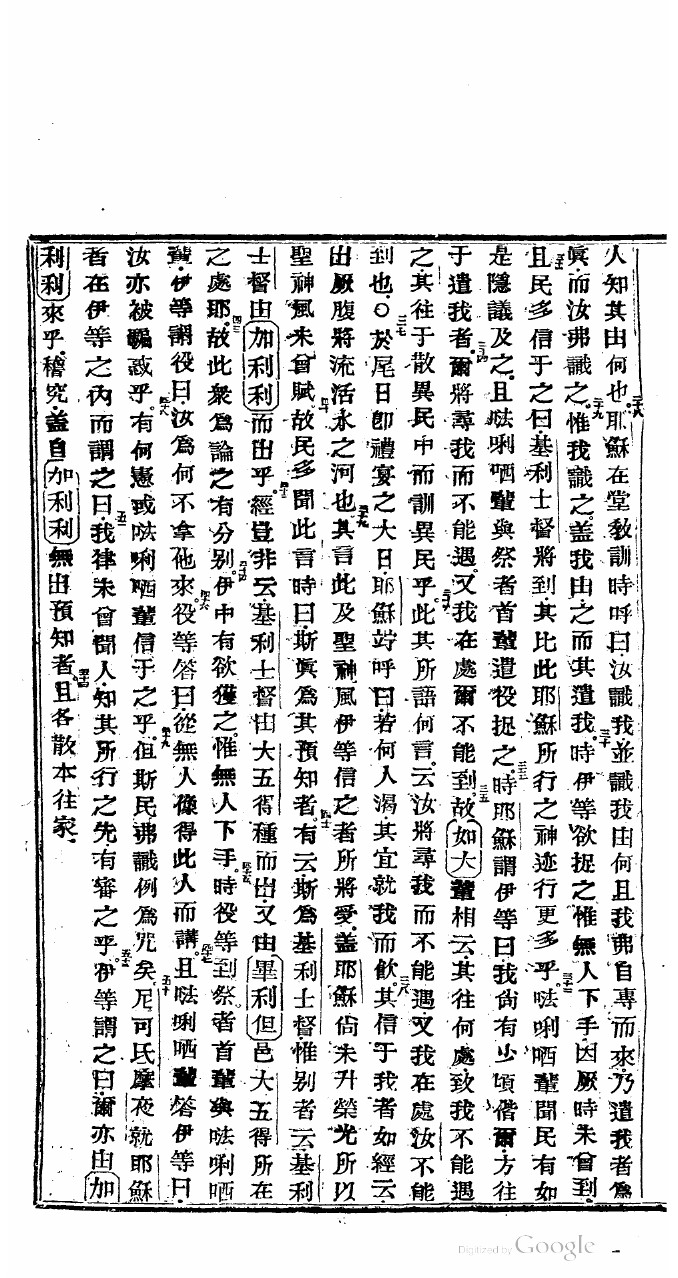 人知其由何也耶穌在堂教訓時呼曰汝識我並識我由何且我弗自專而來乃遣我者為
眞而汝弗識之惟我識之蓋我由之而其遣我時伊等欲捉之惟無人下手因厥時未曾到
且民多信于之曰基利士督將到其比此耶穌所行之神迹行更多乎㕸唎哂輩聞民有如
是隱議及之且㕸唎哂輩與祭者首輩遣役捉之時耶穌謂伊等曰我尚有少頃偕爾方往
于遣我者爾將尋我而不能遇又我在處爾不能到故如大輩相云其往何處致我不能遇
之其往于散異民中而訓異民乎此其所語何言云汝將尋我而不能遇又我在處汝不能
到也○於尾日卽禮宴之大日耶穌竚呼曰若何人渴其宜就我而飲其信于我者如經云
出厥腹將流活水之河也其言此及聖神風伊等信之者所將受蓋耶穌尚未升榮光所以
聖神風未曾賦故民多聞此言時曰斯眞為其預知者有云斯為基利士督惟別者云基利
士督由加利利而出乎經豈非云基利士督由大五得種而出又由畢利但邑大五得所在
之處耶故此衆為論之有分別伊中有欲獲之惟無人下手時役等到祭者首輩與㕸唎哂
輩伊等謂役曰汝為何不拿他來役等答曰從無人像得此人而講且㕸唎哂輩答伊等曰
汝亦被騙惑乎有何憲或㕸唎哂輩信于之乎但斯民弗識例為咒矣尼可氏摩夜就耶穌
者在伊等之內而謂之曰我律未曾聞人知其所行之先有審之乎伊等謂之曰爾亦由加
利利來乎稽究蓋自加利利無出預知者且各散本往家
Digitized by Google